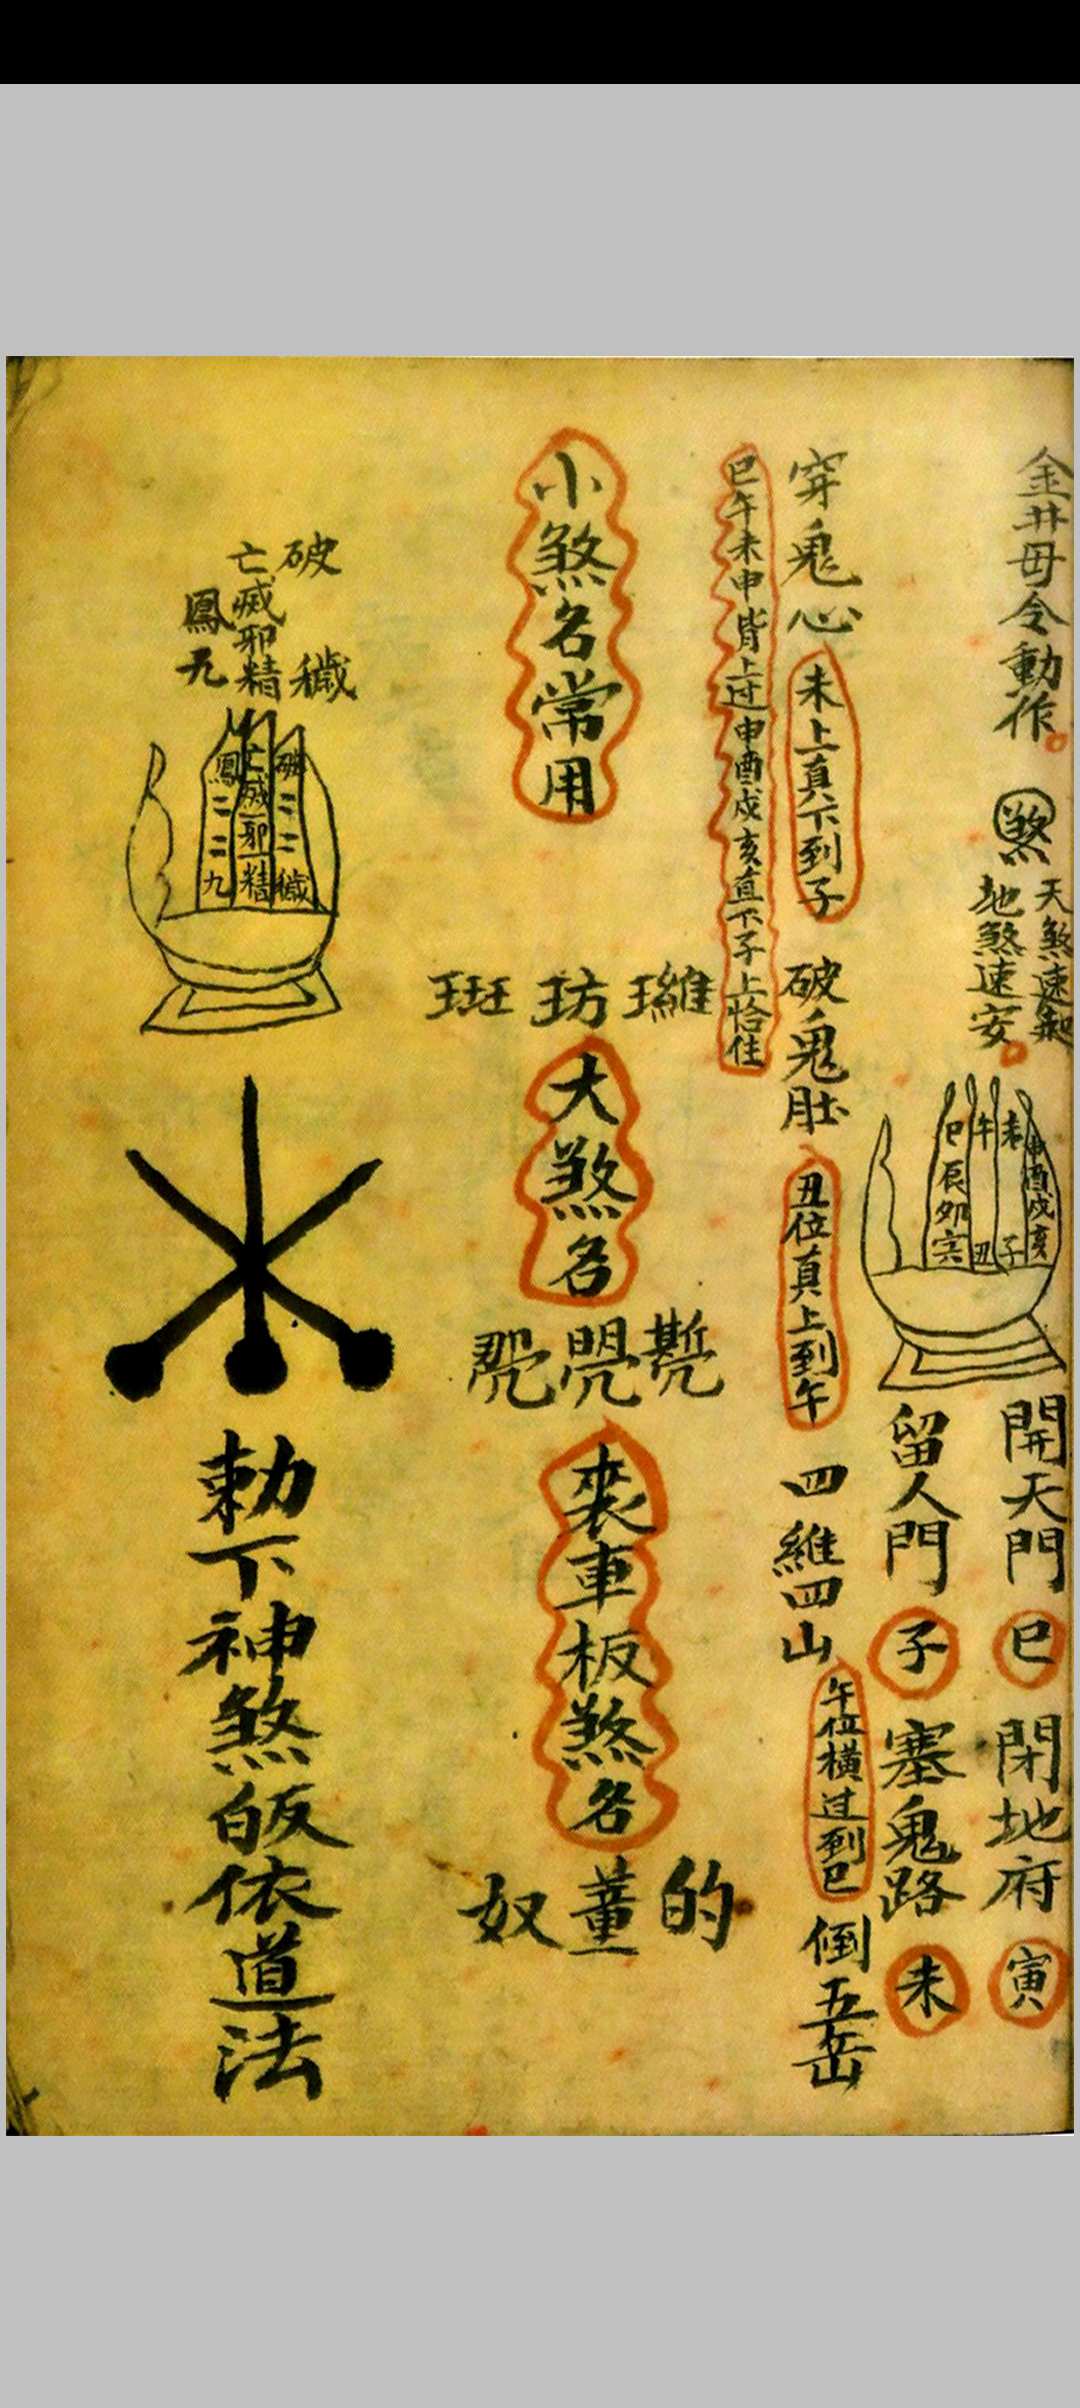 金井毋令動作
煞
天煞速起
地煞速安
巳 辰 卯 寅
午 丑
未 子
申酉戌亥
開天門 巳 閉地府 寅
留人門 子 塞鬼路 未
穿鬼心 未上真下到子 破鬼肚 丑位真上到午 四維四山 午位橫过到巳 倒五岳
巳午未申皆上过申酉戌亥直下子上恰住
小煞名常用
坊
大煞名
裘車板煞名
的 董 奴
破 穢
亡 邪精
鳳 九
破 二 二 穢
亡 一 邪 一 精
鳳 二 二 九
勅下神煞皈依道法